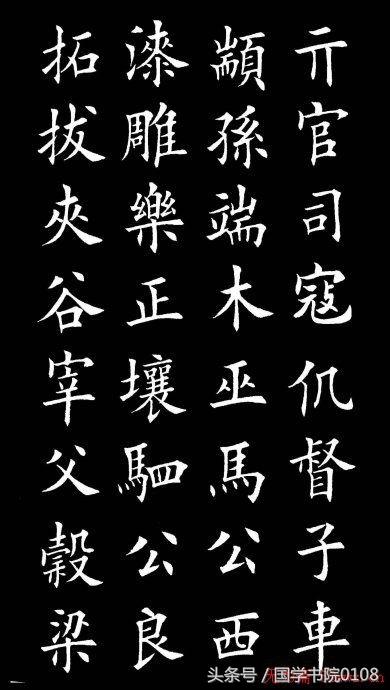 亓官司寇仉督子車
顓孫端木巫馬公西
漆雕樂正壤駟公良
拓拔夾谷宰父穀梁
头条号 / 国学书院0108